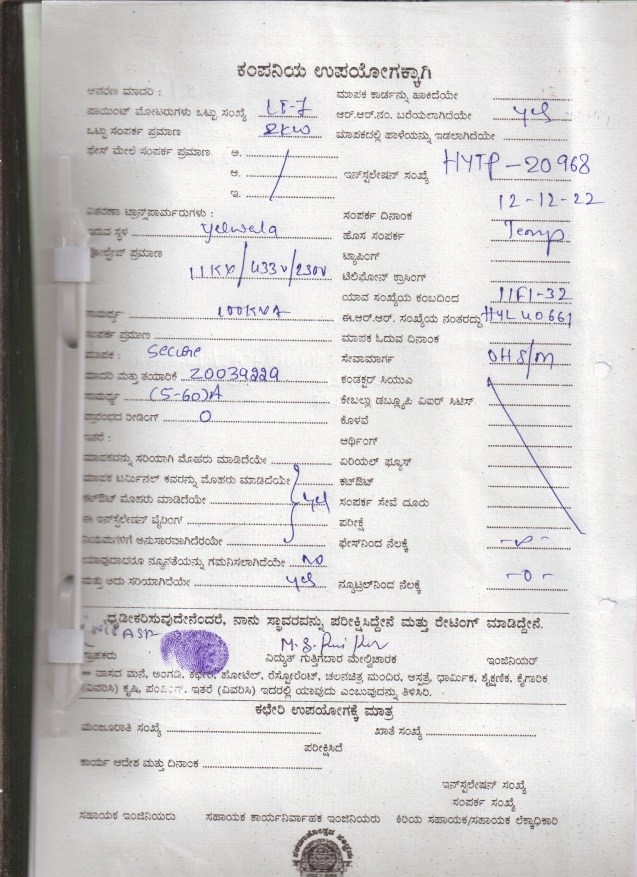 ಕಂಪನಿಯ ಉಪಯೋಗಕ್ಕಾಗಿ
ಆವರಣ ಮಾದರಿ : ಮಾಪಕ ಕಾರ್ಡನ್ನು ಹಾಕಿದೆಯೇ
ಪಾಯಿಂಟ್ ಮೋಟರುಗಳು ಒಟ್ಟು ಸಂಖ್ಯೆ LT-7 ಆರ್.ಆರ್.ನಂ. ಬರೆಯಲಾಗಿದೆಯೇ yes
ಒಟ್ಟು ಸಂಪರ್ಕ ಪ್ರಮಾಣ 2KW ಮಾಪಕದಲ್ಲಿ ಹಾಳೆಯನ್ನು ಇಡಲಾಗಿದೆಯೇ
ಫೇಸ್ ಮೇಲೆ ಸಂಪರ್ಕ ಪ್ರಮಾಣ ಅ.
ಆ. ಇನ್‌ಸ್ಟಲೇಷನ್ ಸಂಖ್ಯೆ HYTP-20968
ಇ. 12-12-22
ವಿತರಣಾ ಟ್ರಾನ್ಸ್‌ಪಾರ್ಮರುಗಳು : ಸಂಪರ್ಕ ದಿನಾಂಕ
ಇರುವ ಸ್ಥಳ yelwala ಹೊಸ ಸಂಪರ್ಕ Temp
ವೋಲ್ಟೇಜ್ ಪ್ರಮಾಣ ಟ್ಯಾಪಿಂಗ್
11KV/433V/230V ಟೆಲಿಫೋನ್ ಕ್ರಾಸಿಂಗ್
ಯಾವ ಸಂಖ್ಯೆಯ ಕಂಬದಿಂದ 11F1-32
ಸಾಮರ್ಥ್ಯ 100KVA ಈ.ಆರ್.ಆರ್. ಸಂಖ್ಯೆಯ ನಂತರದ್ದು HYL40661
ಸಂಪರ್ಕ ಪ್ರಮಾಣ ಮಾಪಕ ಓದುವ ದಿನಾಂಕ
ಮಾಪಕ : Secure ಸೇವಾಮಾರ್ಗ OHS/M
ಮಾದರಿ ಮತ್ತು ತಯಾರಿಕೆ 20039229 ಕಂಡಕ್ಟರ್ ಸಿಯುಎ
ಸಾಮರ್ಥ್ಯ (5-60)A ಕೇಬಲ್ಲು ಡಬ್ಲ್ಯೂಪಿ ವಿಐರ್ ಸಿಟಿಸ್
ಪ್ರಾರಂಭದ ರೀಡಿಂಗ್ 0 ಕೊಳವೆ
ಇತರೆ : ಆರ್ಥಿಂಗ್
ಮಾಪಕವನ್ನು ಸರಿಯಾಗಿ ಮೊಹರು ಮಾಡಿದೆಯೇ ಏರಿಯಲ್ ಫ್ಯೂಸ್
ಮಾಪಕ ಟರ್ಮಿನಲ್ ಕವರನ್ನು ಮೊಹರು ಮಾಡಿದೆಯೇ ಕಟ್‌ಔಟ್
ಕಟ್‌ಔಟ್ ಮೊಹರು ಮಾಡಿದೆಯೇ yes ಸಂಪರ್ಕ ಸೇವೆ ದೂರು
ಈ ಇನ್‌ಸ್ಟಲೇಷನ್ ವೈರಿಂಗ್ ಪರೀಕ್ಷೆ
ನಿಯಮಗಳಿಗೆ ಅನುಸಾರವಾಗಿದೆರಯೇ ಫೇಸ್‌ನಿಂದ ನೆಲಕ್ಕೆ -0-
ಯಾವುದಾದರೂ ನ್ಯೂನತೆಯನ್ನು ಗಮನಿಸಲಾಗಿದೆಯೇ NO
ಮತ್ತು ಅದು ಸರಿಯಾಗಿದೆಯೇ yes ನ್ಯೂಟ್ರಲ್‌ನಿಂದ ನೆಲಕ್ಕೆ -0-
ಧೃಡೀಕರಿಸುವುದೇನೆಂದರೆ, ನಾನು ಸ್ಥಾವರವನ್ನು ಪರೀಕ್ಷಿಸಿದ್ದೇನೆ ಮತ್ತು ರೇಟಿಂಗ್ ಮಾಡಿದ್ದೇನೆ.
ಗ್ರಾಹಕರು ವಿದ್ಯುತ್ ಗುತ್ತಿಗದಾರ ಮೇಲ್ವಿಚಾರಕ ಇಂಜಿನಿಯರ್
= ವಾಸದ ಮನೆ, ಅಂಗಡಿ, ಕಛೇರಿ, ಹೋಟೆಲ್, ರೆಸ್ಟೋರೆಂಟ್, ಚಲನಚಿತ್ರ ಮಂದಿರ, ಆಸ್ಪತ್ರೆ, ಧಾರ್ಮಿಕ, ಶೈಕ್ಷಣಿಕ, ಕೈಗಾರಿಕ
(ವಿವರಿಸಿ) ಕೃಷಿ, ಪಂಪಿಂಗ್, ಇತರೆ (ವಿವರಿಸಿ) ಇದರಲ್ಲಿ ಯಾವುದು ಎಂಬುವುದನ್ನು ತಿಳಿಸಿರಿ.
ಕಛೇರಿ ಉಪಯೋಗಕ್ಕೆ ಮಾತ್ರ
ಮಂಜೂರಾತಿ ಸಂಖ್ಯೆ ಖಾತೆ ಸಂಖ್ಯೆ
ಪರೀಕ್ಷಿಸಿದೆ
ಕಾರ್ಯ ಆದೇಶ ಮತ್ತು ದಿನಾಂಕ
ಇನ್‌ಸ್ಪಲೇಷನ್ ಸಂಖ್ಯೆ
ಸಂಪರ್ಕ ಸಂಖ್ಯೆ
ಸಹಾಯಕ ಇಂಜಿನಿಯರು ಸಹಾಯಕ ಕಾರ್ಯನಿರ್ವಾಹಕ ಇಂಜಿನಿಯರು ಕಿರಿಯ ಸಹಾಯಕ/ಸಹಾಯಕ ಲೆಕ್ಕಾಧಿಕಾರಿ